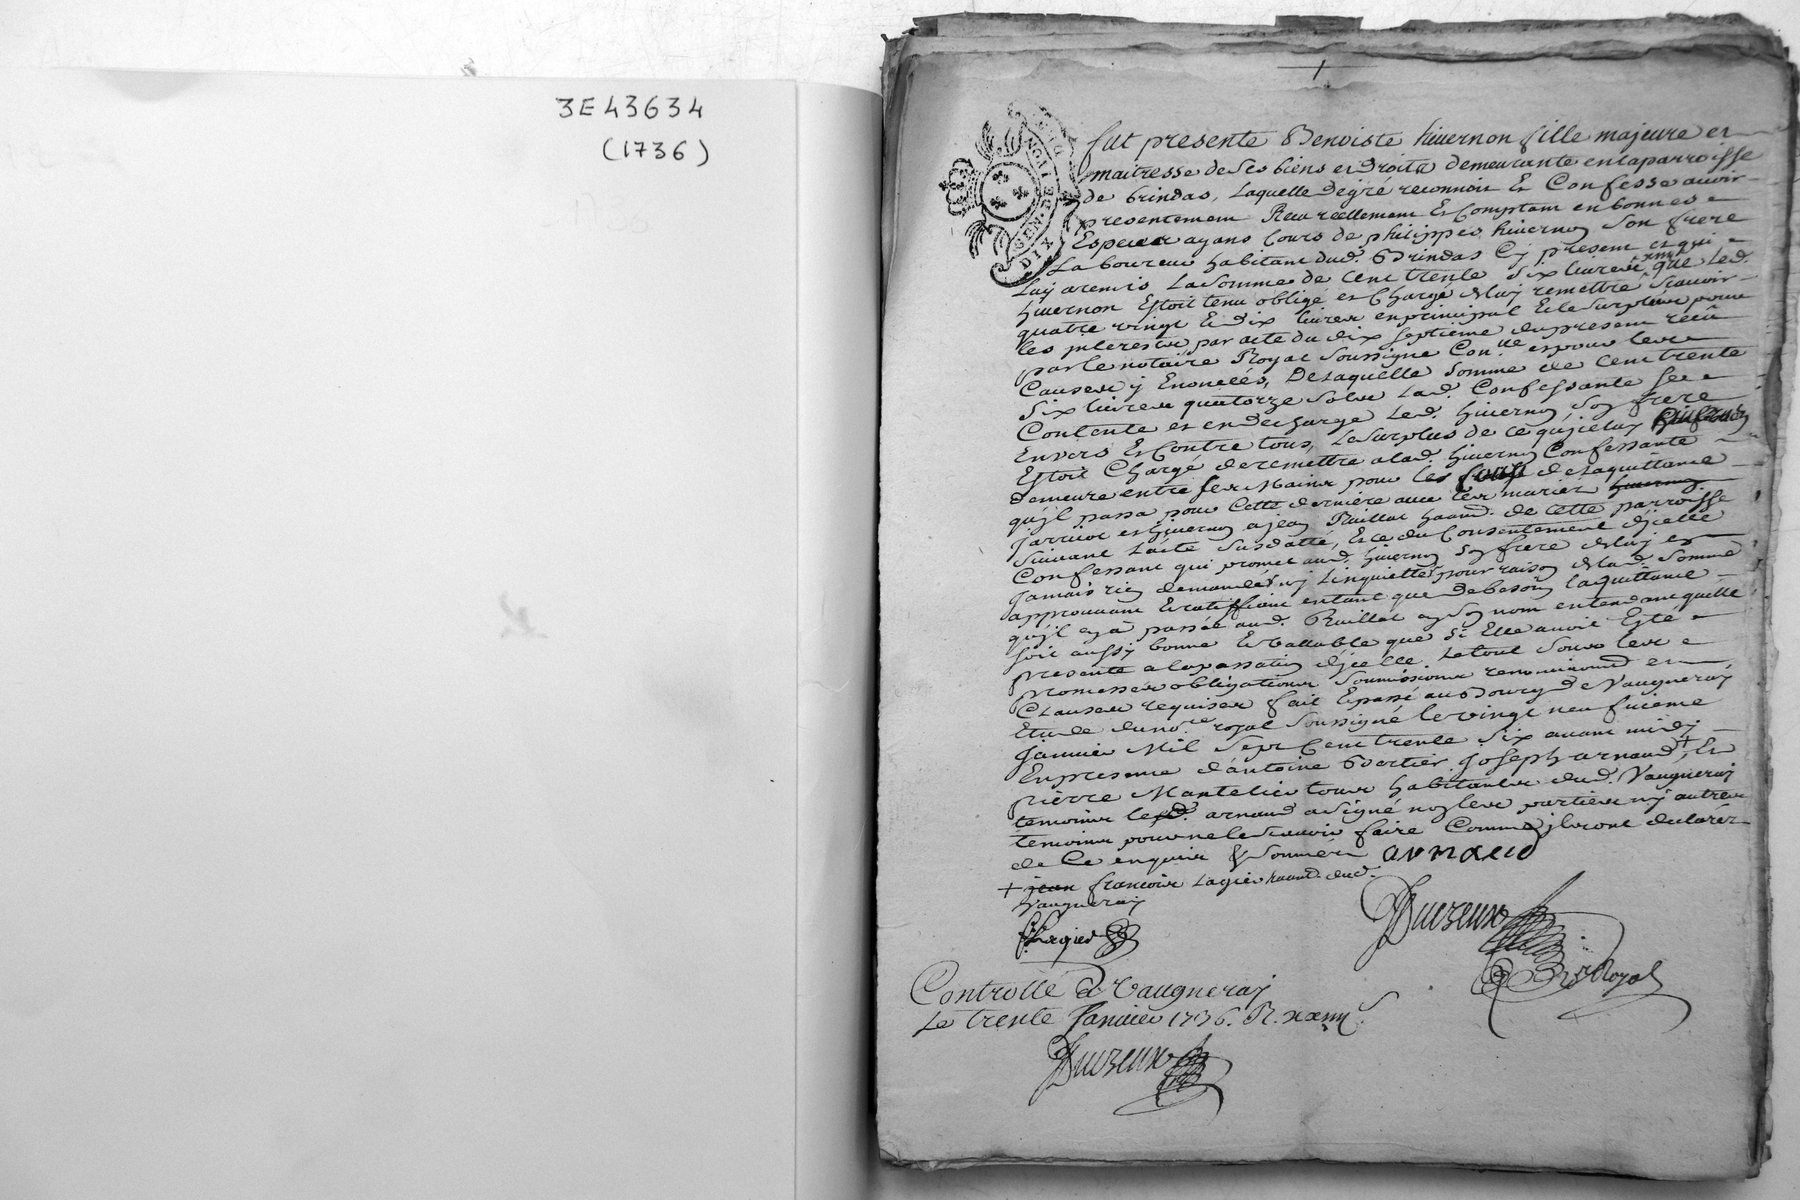 3E43634
(1736)
1
GEN. DE LYON
DIX
fut presente Benoiste hivernon fille majeure et
maitresse de ses biens et droits demeurante en la parroisse
de Brindas, Laquelle de gré reconnoit Et Confesse avoir
presentement Receu reellement Et Comptant en bonnes
Especes ayans Cours de philippes hivernon son frere
Laboureur habitant dud. Brindas Cy present et qui
Luy a remis La somme de Cent trente six livres que led.
hivernon Estoit tenu obligé et Chargé de luy remettre scavoir
quatre vingt Et dix livres en principal Et le surplus pour
les interests par acte du dix septieme du present receu
par le notaire Royal soussigné Con.lle et pour les
Causes y Enoncées, De laquelle somme de Cent trente
six livres quatorze sols Lad. Confessante se
Contente et en decharge Led. hivernon son frere
Envers Et Contre tous, Le surplus de ce qu'icelui
Estoit Chargé de remettre a lad. hivernon Confessante
demeure entre ses Mains pour les de la quittance
qu'il passa pour Cette derniere avec les mariez
Jarricot et hivernon a jean Raillat haand. de cette parroisse
suivant L'acte susdatté, Et ce du Consentement d'icelle
Confessant qui promet aud. hivernon son frere de luy en
Jamais rien demander ny L'inquietter pour raison de lad. somme
approuvant Et ratiffiant entant que de besoin la quittance
qu'il a passée aud. Raillat en son nom entendant quelle
soit aussy bonne Et vallable que si Elle avoit Esté
presente a la passation d'icelle. Le tout sous les
promesses obligations soumissions renonciaons et
Clauses requises fait Et passé au Bourg de Vaugneray
Etude du no.re royal soussigné le vingt neufvieme
Janvier Mil sept Cent trente six avant midy
En presence d'antoine Joseph arnaud + Et
pierre Mantelier tous habitants dud. Vaugneray
temoins led. arnaud a signé non les parties ny autres
temoins pour ne le scavoir faire Comme ils ont declarés
de Ce enquis & sommés arnaud
+ jean francois Lagier haand. dud.
Vaugneray
Lagier
Controllé a Vaugneray
Le trente Janvier 1736. R.
Royal